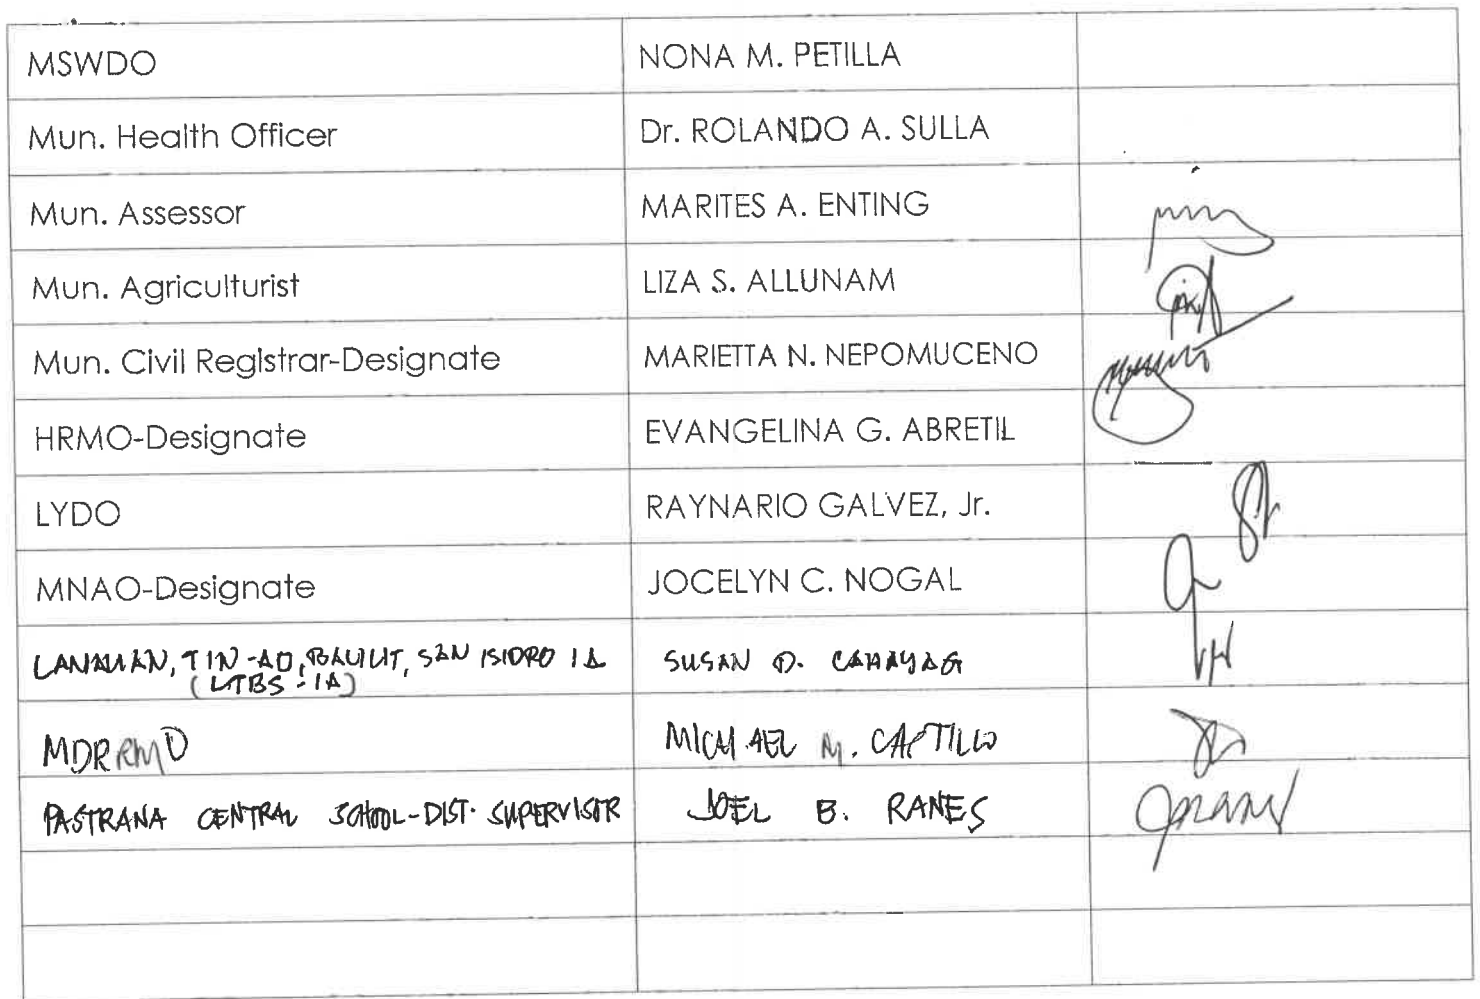 MSWDO NONA M. PETILLA
Mun. Health Officer Dr. ROLANDO A. SULLA
Mun. Assessor MARITES A. ENTING
Mun. Agriculturist LIZA S. ALLUNAM
Mun. Civil Registrar-Designate MARIETTA N. NEPOMUCENO
HRMO-Designate EVANGELINA G. ABRETIL
LYDO RAYNARIO GALVEZ, Jr.
MNAO-Designate JOCELYN C. NOGAL
TIN-AO, SAN ISIDRO IA SUSAN D. CAHAYAG
(LTBS-IA)
MDRRMO MICHAEL M. CASTILLO
PASTRANA CENTRAL SCHOOL-DIST. SUPERVISOR JOEL B. RANES